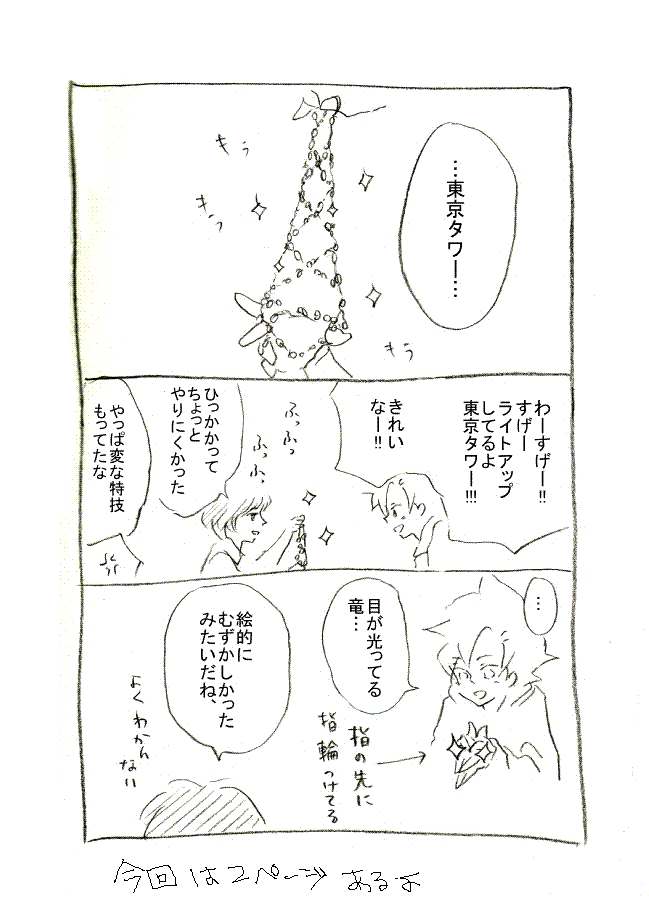 …東京タワー…
キラ
キラ
キラ
わーすげー!!
すげー
ライトアップ
してるよ
東京タワー!!!
きれい
なー!!
ふっふっ
ふっふっ
ひっかかって
ちょっと
やりにくかった
やっぱ変な特技
もってたな
…
目が光ってる
竜…
指の先に
指輪つけてる
絵的に
むずかしかった
みたいだね、
よくわかん
ない
今回は2ページあるよ